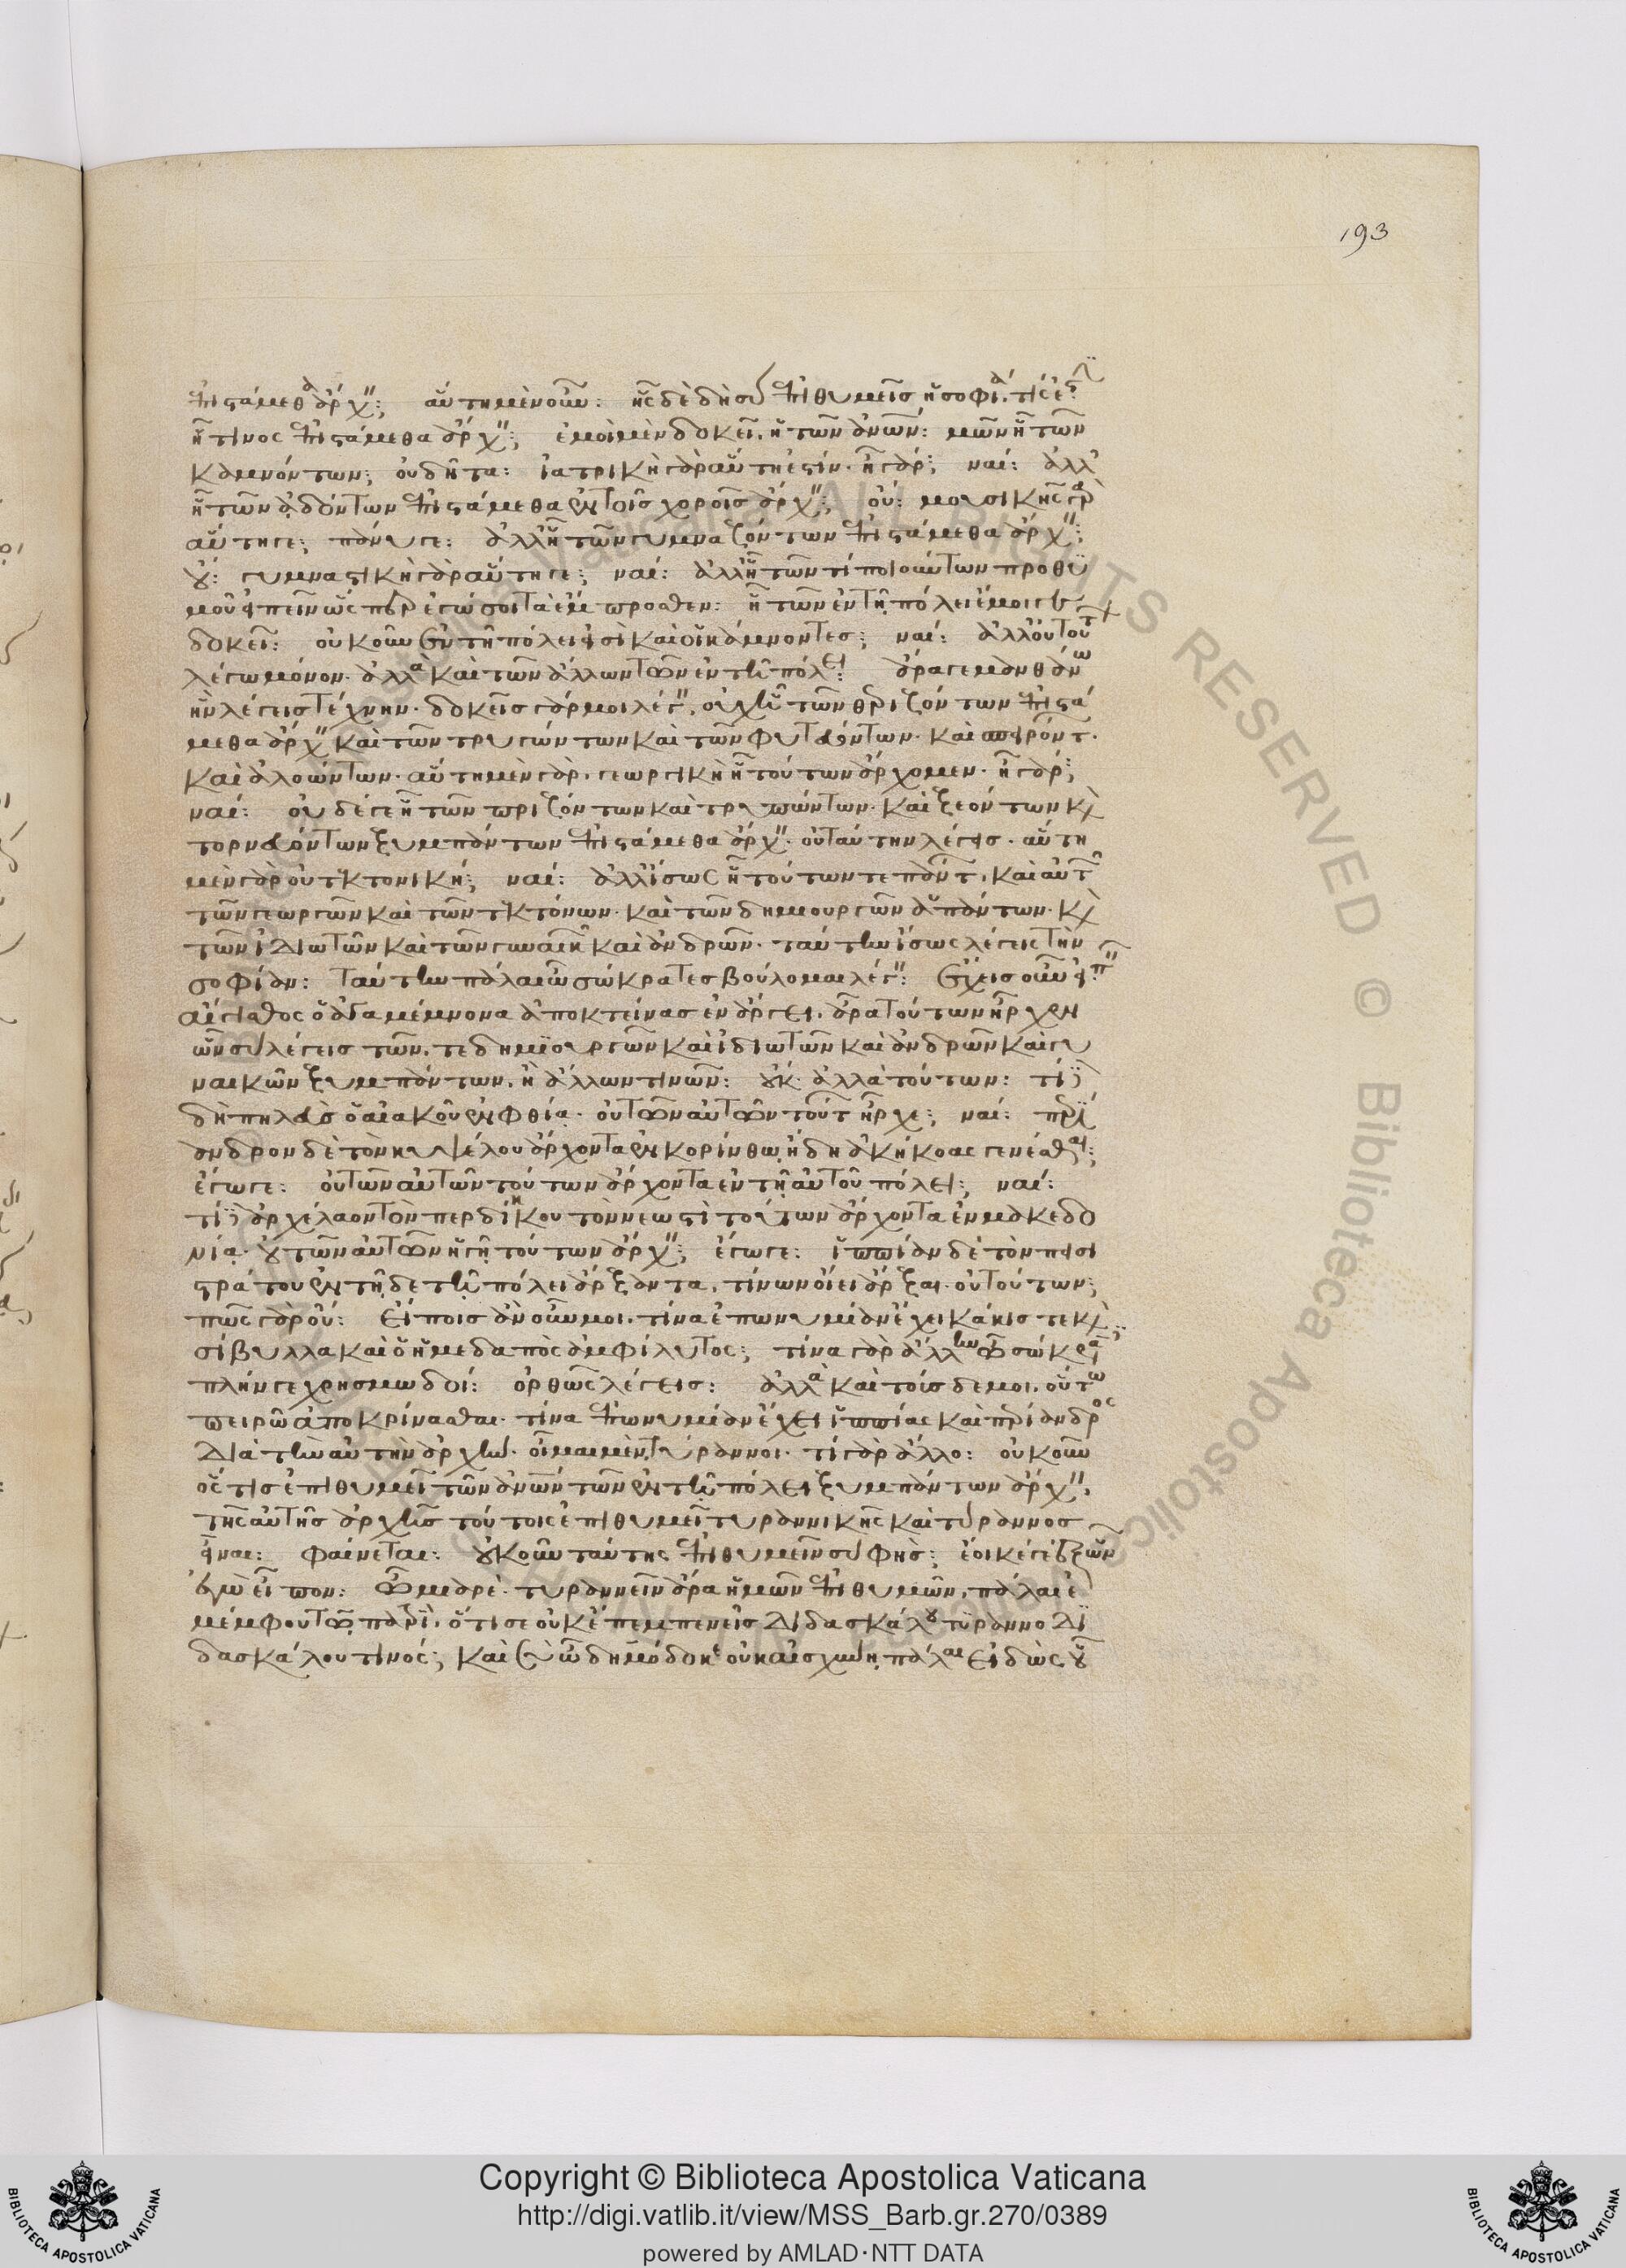 193
ἐπιστάμεθα ἄρχειν; αὕτη μὲν οὖν: ἧς δὲ δὴ σὺ ἐπιθυμεῖς ἡ σοφία τίς ἐστι
ἧ τίνος ἐπιστάμεθα ἄρχειν; ἐμοὶ μὲν δοκεῖ. ἡ τῶν ἀνων: μῶν ἧ τῶν
καμνόντων; οὐ δῆτα: ἰατρικὴ γὰρ αὕτη ἐστίν. ἦ γάρ; ναί: ἀλλ'
ἧ τῶν ᾀδόντων ἐπιστάμεθα ἐν τοῖς χοροῖς ἄρχειν; οὔ: μουσικὴ γὰρ
αὕτη γε; πάνυ γε: ἀλλ' ἧ τῶν γυμναζόντων ἐπιστάμεθα ἄρχειν;
οὔ: γυμναστικὴ γὰρ αὕτη γε; ναί: ἀλλ' ἧ τῶν τί ποιούντων προθυ
μοῦ εἰπεῖν ὥσπερ ἐγώ σοι τὰ ἔμπροσθεν: ἧ τῶν ἐν τῇ πόλει ἔμοιγε
δοκεῖ: οὐκοῦν ἐν τῇ πόλει εἰσὶ καὶ οἱ κάμνοντες; ναί: ἀλλ' οὐ τούτων
λέγω μόνον. ἀλλὰ καὶ τῶν ἄλλων τῶν ἐν τῇ πόλει: ἆρά γε μανθάνω
ἣν λέγεις τέχνην. δοκεῖς γάρ μοι λέγειν. οὐχ ἧ τῶν θεριζόντων ἐπιστά
μεθα ἄρχειν καὶ τῶν τρυγώντων καὶ τῶν φυτευόντων. καὶ σπειρόντων.
καὶ ἀλοώντων. αὕτη μὲν γὰρ. γεωργικὴ ἧ τούτων ἄρχομεν. ἦ γάρ;
ναί: οὐδέ γε ἧ τῶν πριζόντων καὶ τρυπώντων. καὶ ξεόντων καὶ
τορνευόντων ξυμπάντων ἐπιστάμεθα ἄρχειν. οὐ ταύτην λέγεις. αὕτη
μὲν γὰρ οὐ τεκτονική; ναί: ἀλλ' ἴσως ἧ τούτων τε πάντων. καὶ αὐτῶν
τῶν γεωργῶν καὶ τῶν τεκτόνων. καὶ τῶν δημιουργῶν ἁπάντων. καὶ
τῶν ἰδιωτῶν καὶ τῶν γυναικῶν καὶ ἀνδρῶν. ταύτην ἴσως λέγεις τὴν
σοφίαν: ταύτην πάλαι ὦ σώκρατες βούλομαι λέγειν: ἔχεις οὖν εἰπεῖν
αἴγισθος ὁ ἀγαμέμνονα ἀποκτείνας ἐν ἄργει. ἆρα τούτων ἦρχεν
ὧν σὺ λέγεις τῶν. τε δημιουργῶν καὶ ἰδιωτῶν καὶ ἀνδρῶν καὶ γυ
ναικῶν ξυμπάντων. ἢ ἄλλων τινῶν: οὔκ. ἀλλὰ τούτων: τί δὲ
δὴ πηλεὺς ὁ αἰακοῦ ἐν φθίᾳ. οὐ τῶν αὐτῶν τούτων ἦρχε; ναί: περί
ανδρον δὲ τὸν κυψέλου ἄρχοντα ἐν κορίνθῳ ἤδη ἀκήκοας γενέσθαι;
ἔγωγε: οὐ τῶν αὐτῶν τούτων ἄρχοντα ἐν τῇ αὑτοῦ πόλει; ναί:
τί δὲ ἀρχέλαον τὸν περδίκκου τὸν νεωστὶ τούτων ἄρχοντα ἐν μακεδο
νίᾳ. οὐ τῶν αὐτῶν ἡγῇ τούτων ἄρχειν; ἔγωγε: ἱππίαν δὲ τὸν πεισι
στράτου ἐν τῇδε τῇ πόλει ἄρξαντα. τίνων οἴει ἄρξαι. οὐ τούτων;
πῶς γὰρ οὔ: εἴποις ἂν οὖν μοι. τίνα ἐπωνυμίαν ἔχει βάκις τε καὶ
σίβυλλα καὶ ὁ ἡμεδαπὸς ἀμφίλυτος; τίνα γὰρ ἄλλην ὦ σώκρατες
πλήν γε χρησμωδοί: ὀρθῶς λέγεις: ἀλλὰ καὶ τούσδε μοι. οὕτω
πειρῶ ἀποκρίνασθαι. τίνα ἐπωνυμίαν ἔχει ἱππίας καὶ περίανδρος
διὰ τὴν αὐτὴν ἀρχήν. οἶμαι μὲν τύραννοι. τί γὰρ ἄλλο: οὐκοῦν
ὅστις ἐπιθυμεῖ τῶν ἀνων τῶν ἐν τῇ πόλει ξυμπάντων ἄρχειν.
τῆς αὐτῆς ἀρχῆς τούτοις ἐπιθυμεῖ τυραννικῆς καὶ τύραννος
εἶναι: φαίνεται: οὐκοῦν ταύτης ἐπιθυμεῖν σὺ φῄς; ἔοικέ γε ἐξ ὧν
ἐγὼ εἶπον: ὦ μιαρέ. τυραννεῖν ἆρα ἡμῶν ἐπιθυμῶν. πάλαι ἐ
μέμφου τῷ πατρί. ὅτι σε οὐκ ἔπεμπεν εἰς διδασκάλου τύραννο δι
δασκάλου τινός; καὶ σὺ ὦ δημόδοκε οὐκ αἰσχύνῃ. πάλαι εἰδὼς οὗ
Copyright © Biblioteca Apostolica Vaticana
http://digi.vatlib.it/view/MSS_Barb.gr.270/0389
powered by AMLAD·NTT DATA